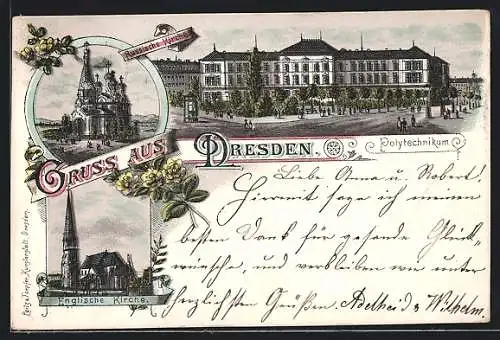 Russische Kirche.
Gruss aus Dresden.
Polytechnikum
Englische Kirche.
Liebe Anna u. Robert!
Hiermit sage ich meinen
besten Dank für gesande Glück-
wünsche, und verbleiben wie unter
herzlichsten Grüßen. Adelheid & Wilhelm.